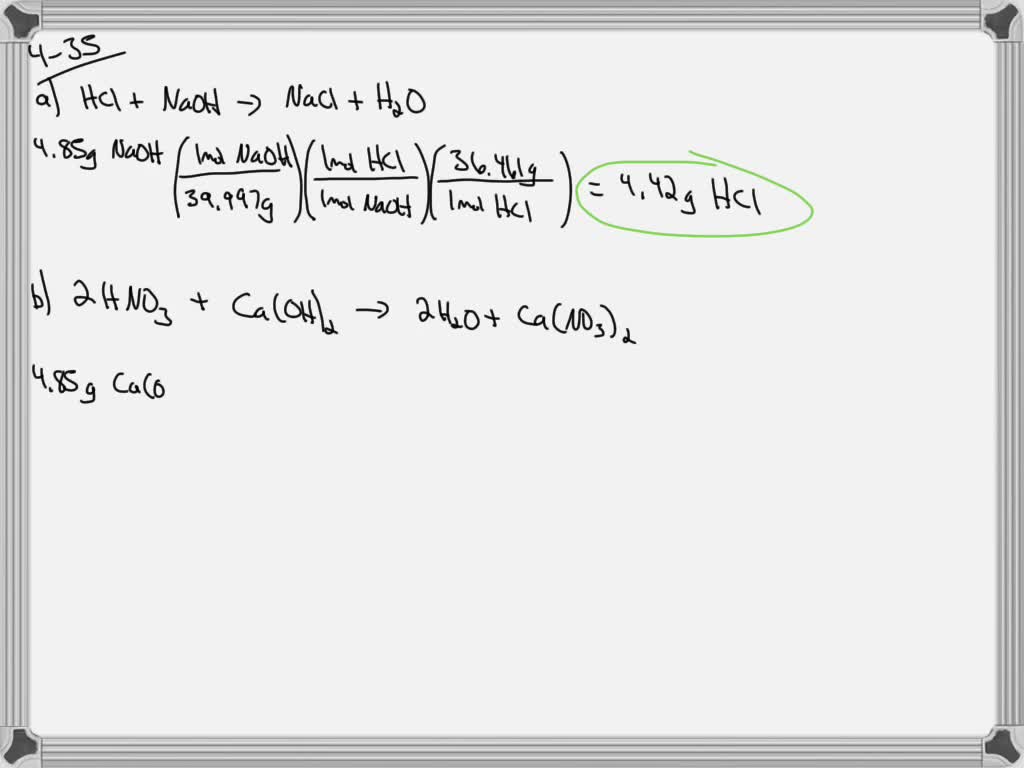 4-35
a) HCl + NaOH → NaCl + H₂O
4.85g NaOH (1mol NaOH / 39.997g) (1mol HCl / 1mol NaOH) (36.461g / 1mol HCl) = 4.42g HCl
b) 2HNO₃ + Ca(OH)₂ → 2H₂O + Ca(NO₃)₂
4.85g Ca(O